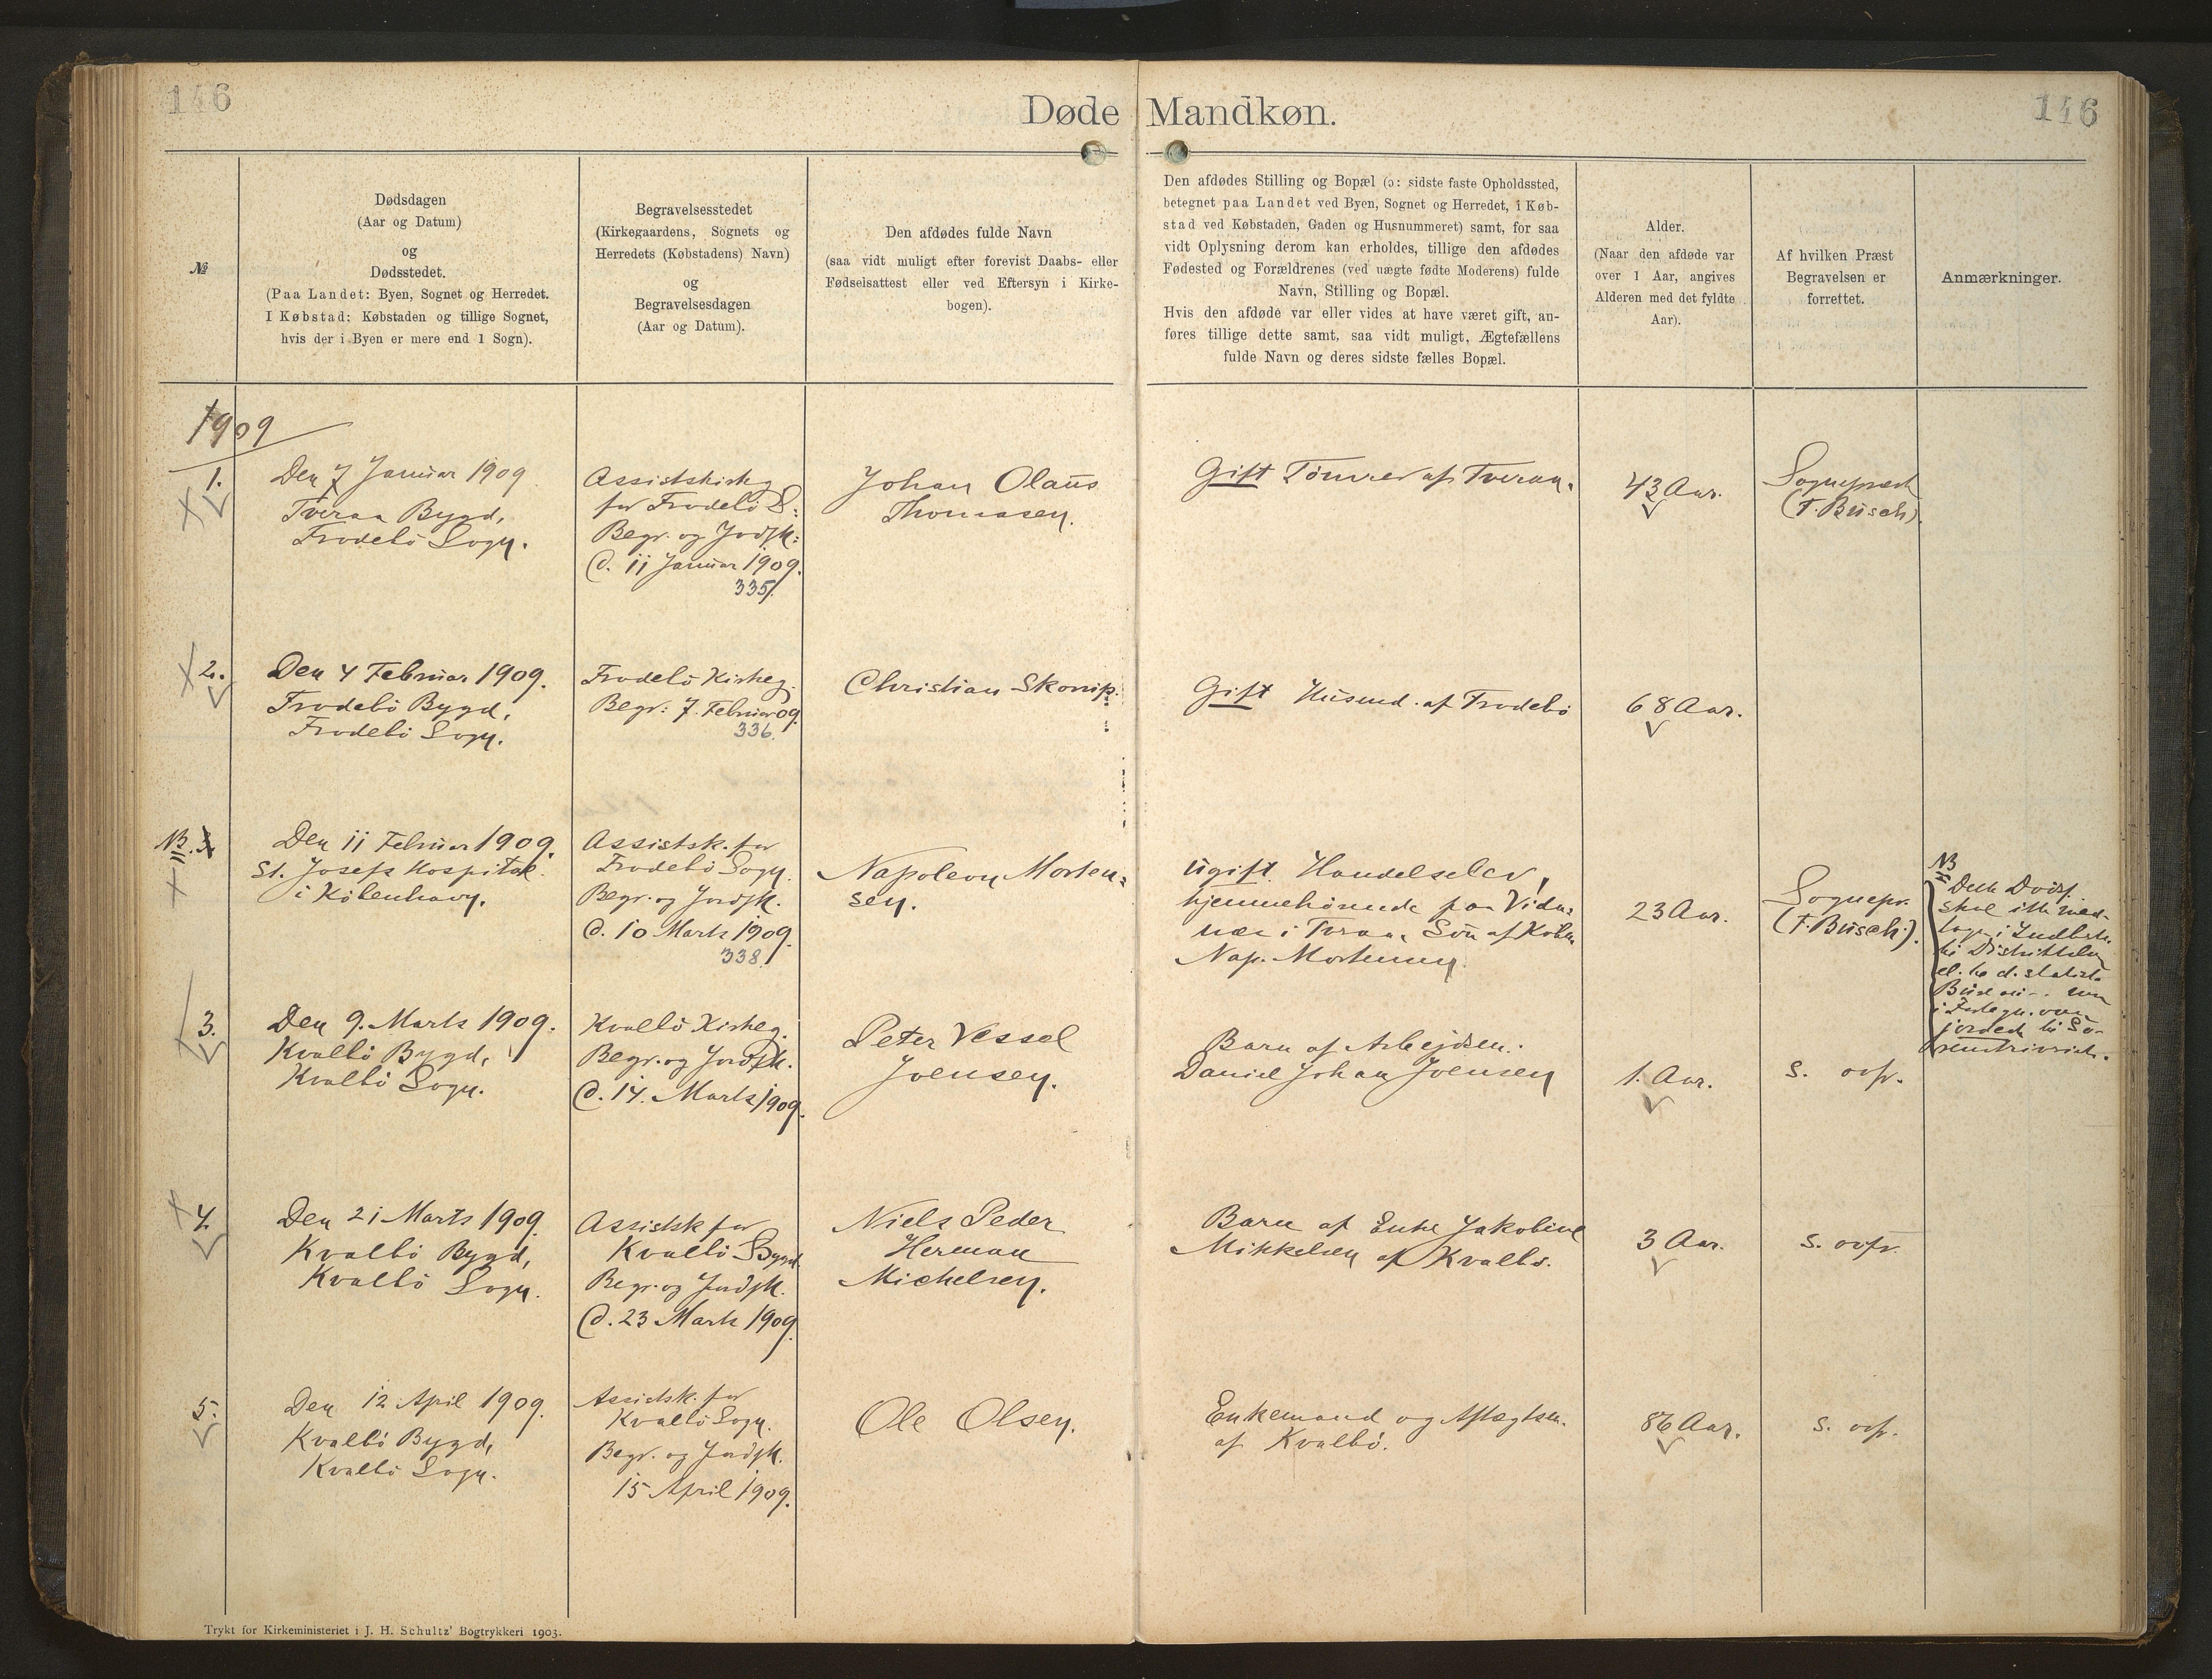 146
Døde Mandkøn.
146
№
Dødsdagen
(Aar og Datum)
og
Dødsstedet.
(Paa Landet: Byen, Sognet og Herredet.
I Købstad: Købstaden og tillige Sognet,
hvis der i Byen er mere end 1 Sogn).
Begravelsesstedet
(Kirkegaardens, Sognets og
Herredets (Købstadens) Navn)
og
Begravelsesdagen
(Aar og Datum).
Den afdødes fulde Navn
(saa vidt muligt efter forevist Daabs- eller
Fødselsattest eller ved Eftersyn i Kirke-
bogen).
Den afdødes Stilling og Bopæl (ɔ: sidste faste Opholdssted,
betegnet paa Landet ved Byen, Sognet og Herredet, i Køb-
stad ved Købstaden, Gaden og Husnummeret) samt, for saa
vidt Oplysning derom kan erholdes, tillige den afdødes
Fødested og Forældrenes (ved uægte fødte Moderens) fulde
Navn, Stilling og Bopæl.
Hvis den afdøde var eller vides at have været gift, an-
føres tillige dette samt, saa vidt muligt, Ægtefællens
fulde Navn og deres sidste fælles Bopæl.
Alder.
(Naar den afdøde var
over 1 Aar, angives
Alderen med det fyldte
Aar).
Af hvilken Præst
Begravelsen er
forrettet.
Anmærkninger.
1909
1.
Den 7 Januar 1909
Tveraa Bygd,
Frodebö Sogn.
Assistskirkeg
for Frodebö S:
Begr. og Jordfk:
d. 11 Januar 1909.
335.
Johan Olaus
Thomasen.
Gift Tömrer af Tveraa.
43 Aar.
Sognepræst
(F. Busch).
2.
Den 4 Februar 1909.
Frodebö Bygd,
Frodebö Sogn.
Frodebö Kirkeg.
Begr: 7. Februar 09.
336.
Christian Skorup.
Gift Husmd. af Frodebö
68 Aar.
NB.
Den 11 Februar 1909.
St. Josefs Hospital
i Köbenhavn.
Assistsk. for
Frodebö Sogn.
Begr. og Jordfk.
d. 10 Marts 1909.
338.
Napoleon Morten=
sen.
Ugift Handelselev,
hjemmehörende paa Vidar=
næs i Tveraa, Sön af Köbm
Nap. Mortensen.
23 Aar.
Sognepr.
(F. Busch).
NB
Dette Dödsf.
skal ikke med-
tages i Indbetn.
til Distriktslæg
el. til d. statist.
3.
Den 9. Marts 1909.
Kvalbö Bygd,
Kvalbö Sogn.
Kvalbö Kirkeg.
Begr. og Jordfk.
d. 14. Marts 1909.
Peter Vessel
Joensen.
Barn af Arbejdsm.
Daniel Johan Joensen
1. Aar.
s. ovfr.
4.
Den 21 Marts 1909.
Kvalbö Bygd,
Kvalbö Sogn.
Assistsk for
Kvalbö Bygd
Begr. og Jordfk.
d. 23 Marts 1909.
Niels Peder
Herman
Michelsen.
Barn af Enke Jakobine
Mikkelsen af Kvalbö.
3 Aar.
s. ovfr.
5.
Den 12 April 1909.
Kvalbö Bygd,
Kvalbö Sogn.
Assistsk. for
Kvalbö Sogn.
Begr. og Jordfk.
15 April 1909.
Ole Olsen.
Enkemand og Aftægtsm.
af Kvalbö.
86 Aar.
s. ovfr.
Trykt for Kirkeministeriet i J. H. Schultz' Bogtrykkeri 1903.